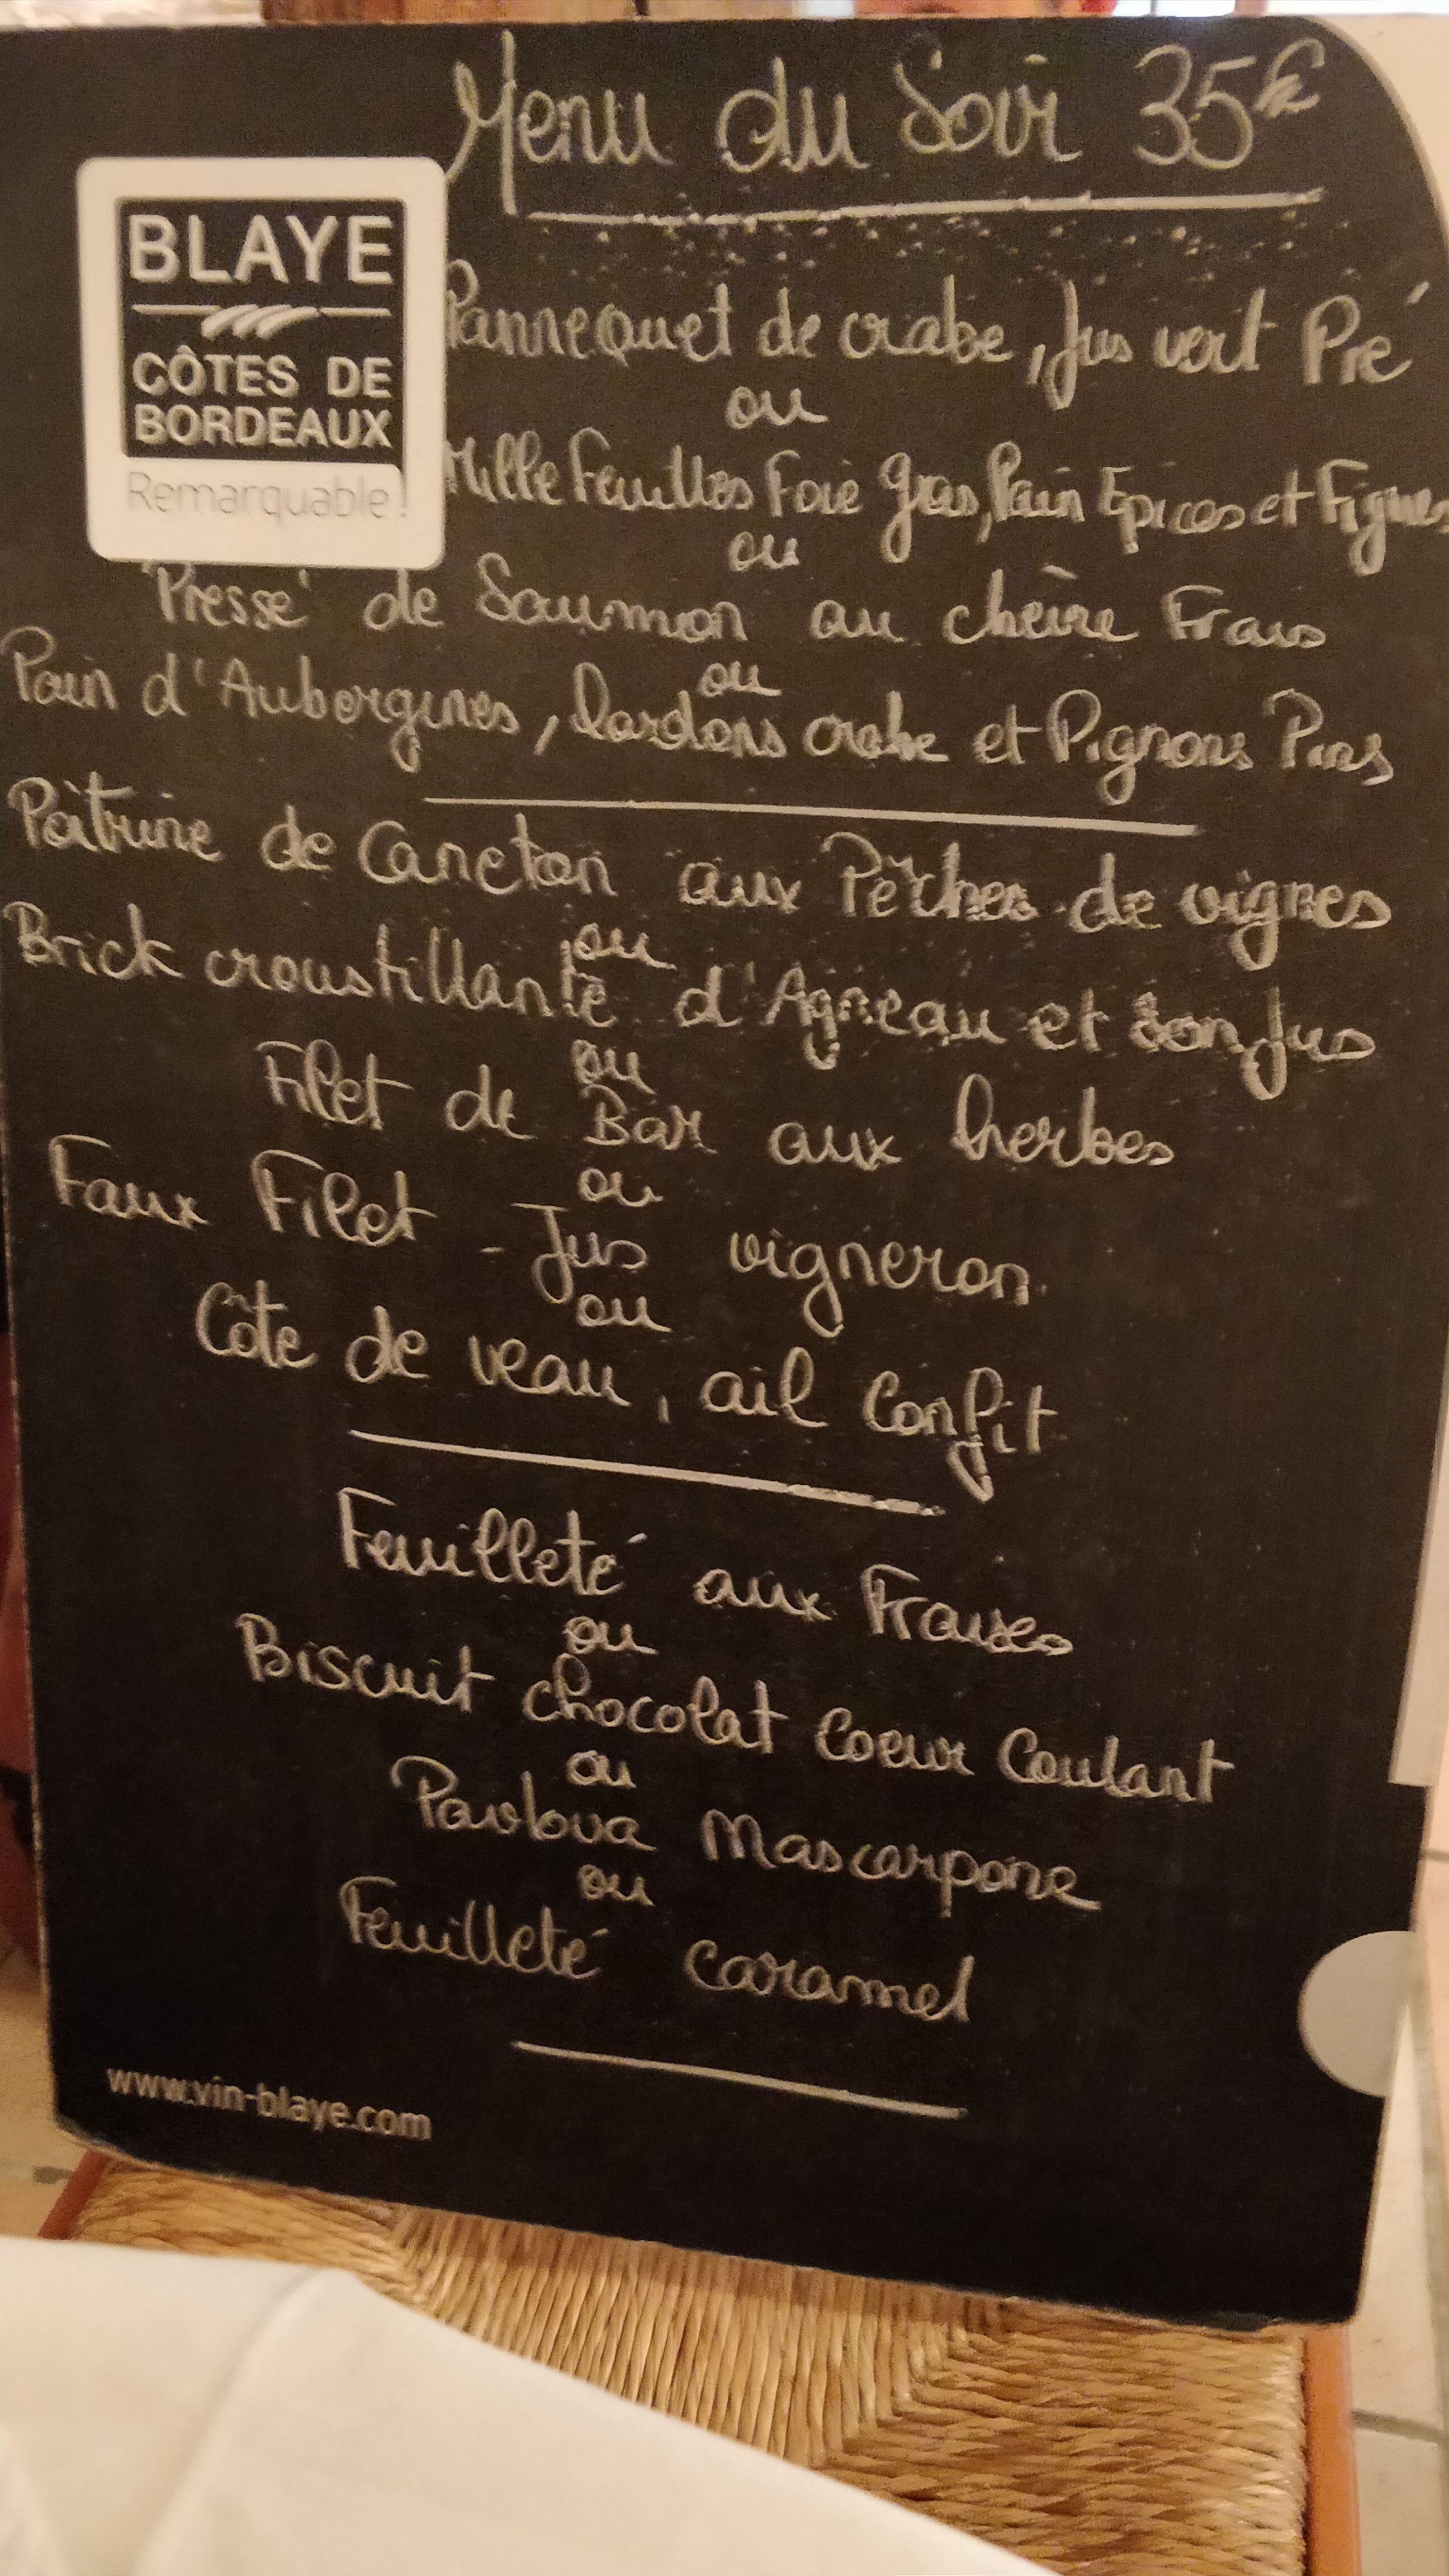 Menu du Soir 35€
BLAYE
CÔTES DE
BORDEAUX
Remarquable!
Pannequet de crabe, Jus vert Pré
ou
Mille Feuilles Foie gras, Pain Epices et Figues
ou
Pressé de Saumon au chèvre Frais
ou
Pain d'Aubergines, lardons crabe et Pignons Pins
Poitrine de Caneton aux Pêches de vignes
ou
Brick croustillante d'Agneau et son Jus
ou
Filet de Bar aux herbes
ou
Faux Filet - Jus vigneron
ou
Côte de veau, ail Confit
Feuilleté aux Fraises
ou
Biscuit chocolat Coeur Coulant
ou
Pavlova Mascarpone
ou
Feuilleté caramel
www.vin-blaye.com